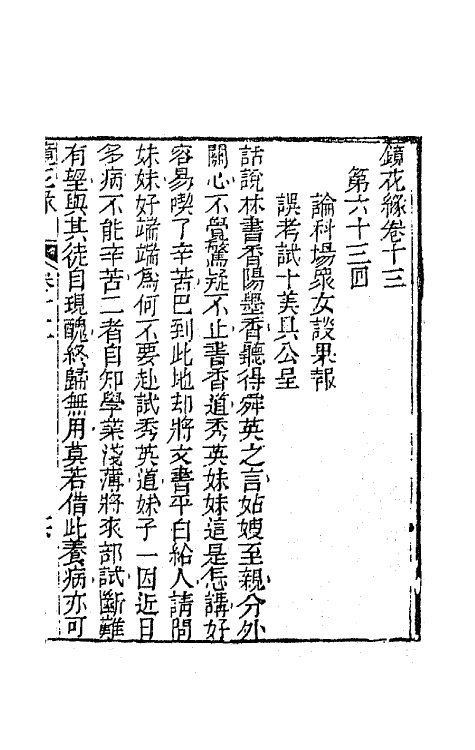 鏡花緣卷十三
第六十三回
論科場衆女談果報
誤考試十美具公呈
話說林書香陽墨香聽得舜英之言姑嫂至親分外
關心不覺驚疑不止書香道秀英妹妹這是怎講好
容易喫了辛苦巴到此地却將文書平白給人請問
妹妹好端端為何不要赴試秀英道妹子一因近日
多病不能辛苦二者自知學業淺薄將來部試斷難
有望與其徒自現醜終歸無用莫若借此養病亦可